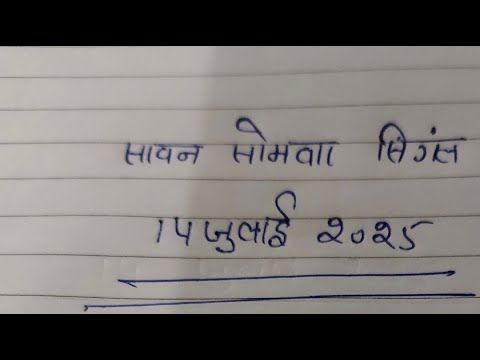 सावन सोमवार सिगंस
14 जुलाई २०२५